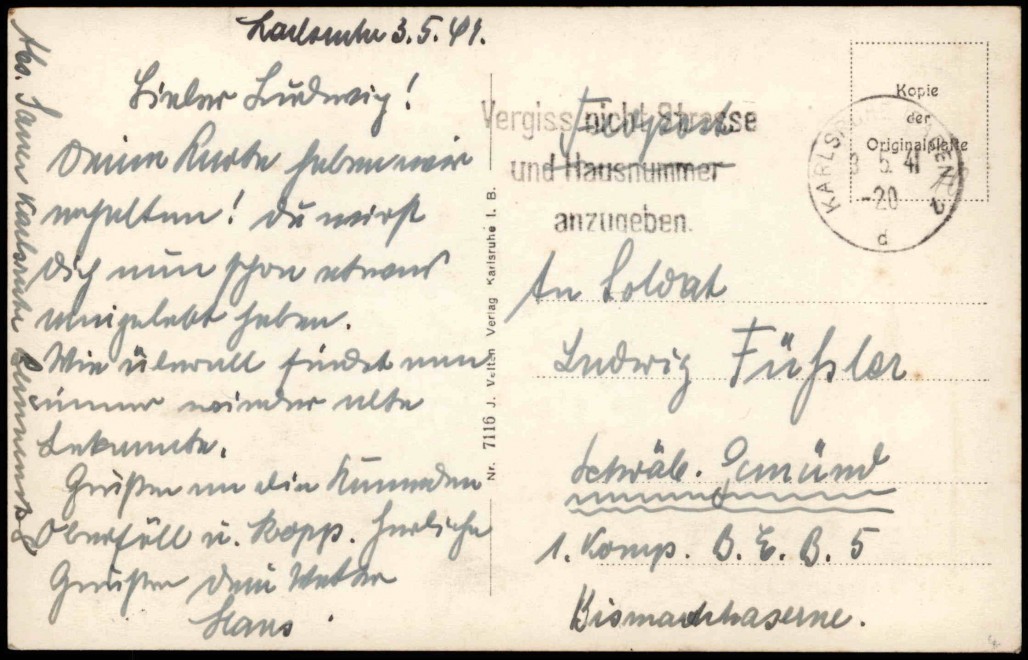 Karlsruhe 3.5.41.
Lieber Ludwig!
Deine Karte haben wir
erhalten! Du wirst
Dich nun schon etwas
eingelebt haben.
Wie überall findet man
immer wieder alte
Bekannte.
Grüßen an die Kameraden
Oberföll u. Kopp. Herliche
Grüßen dein Vetter
Hans
Abs. Karlsruhe
Nr. 7116 J. Velten Verlag Karlsruhe i. B.
Vergiss nicht Strasse
und Hausnummer
anzugeben.
Feldpost
Kopie
der
Originalplatte
KARLSRUHE
3.5.41
-20
d
An Soldat
Ludwig Füßler
Schwäb. Gmünd
1. Komp. B. E. B. 5
Bismarckkaserne.